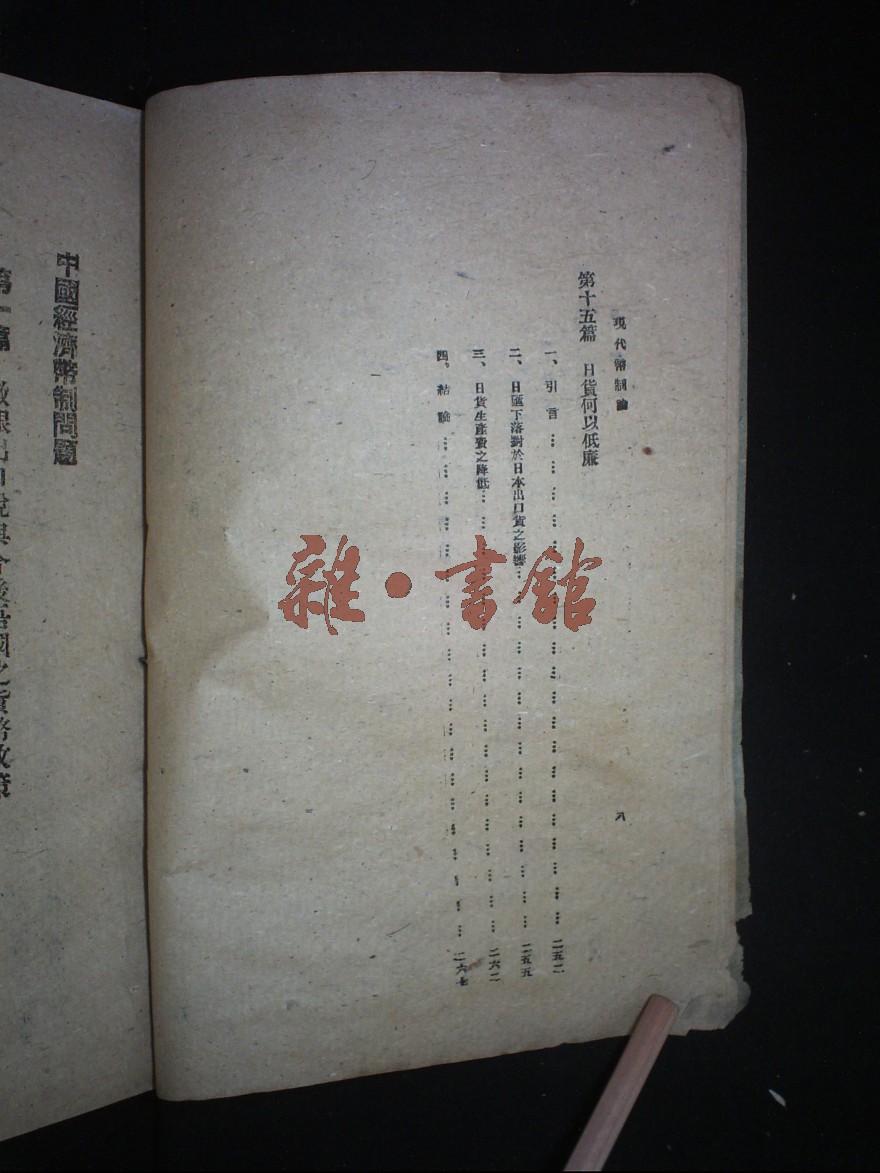 現代幣制論
八
第十五篇 日貨何以低廉
一、引言………………………二五二
二、日匯下落對於日本出口貨之影響………………………二五五
三、日貨生產費之降低………………………二六二
四、結論………………………二六七
中國經濟幣制問題
第一篇 徵銀出口稅與今後吾國之貨幣政策
雜·書館